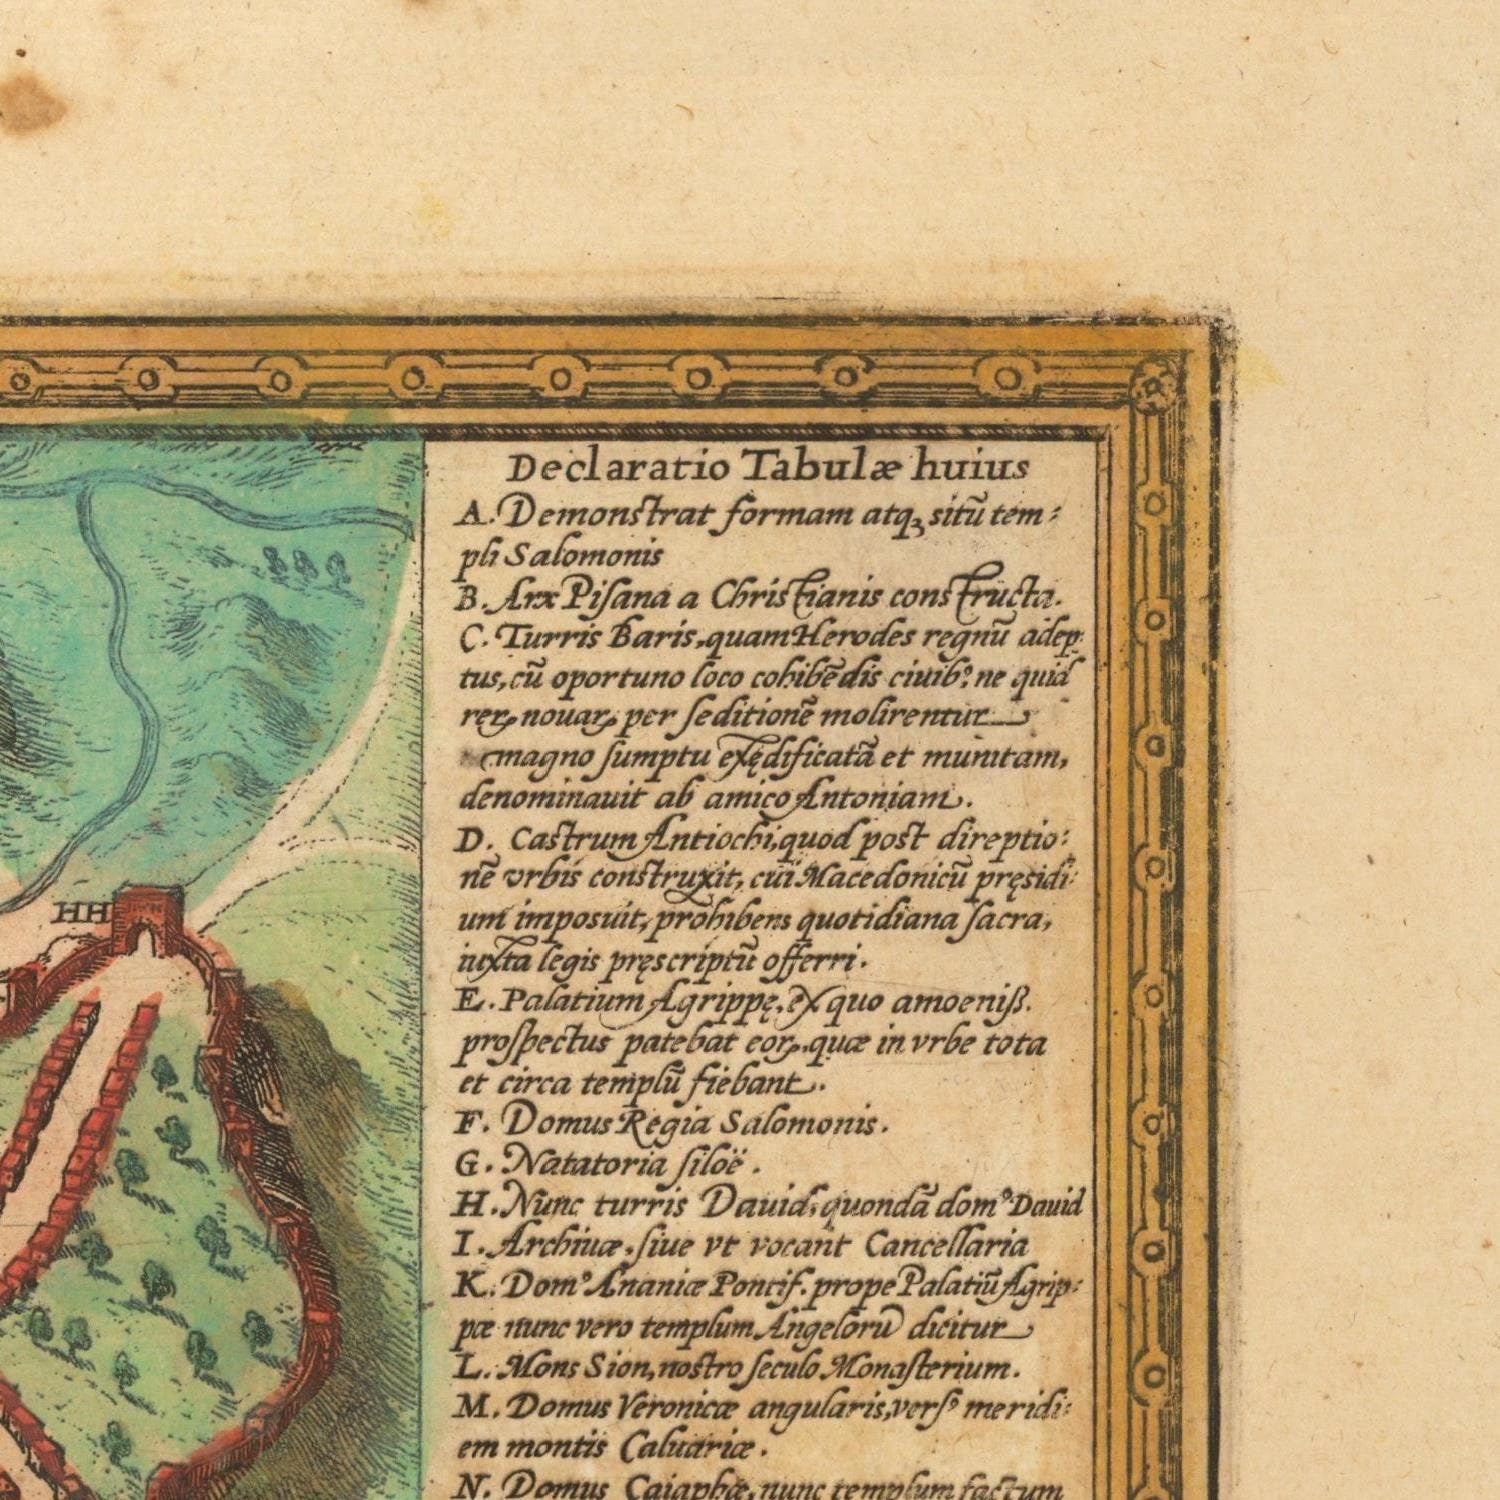 HH
Declaratio Tabulæ huius
A. Demonstrat formam atqꝫ sitū tem:
pli Salomonis
B. Arx Pisana a Christianis constructa.
C. Turris Baris, quam Herodes regnū adep:
tus, cū oportuno loco cohibēdis ciuibꝰ, ne quid
reꝝ nouaꝝ per seditionē molirentur
magno sumptu exędificatā et munitam,
denominauit ab amico Antoniam.
D. Castrum Antiochi, quod post direptio:
nē vrbis construxit, cui Macedonicū pręsidi:
um imposuit, prohibens quotidiana sacra,
iuxta legis pręscriptū offerri.
E. Palatium Agrippę, ex quo amoeniß.
prospectus patebat eoꝝ, quæ in vrbe tota
et circa templū fiebant.
F. Domus Regia Salomonis.
G. Natatoria siloë.
H. Nunc turris Dauid, quondā domꝰ Dauid
I. Archiuæ, siue vt vocant Cancellaria
K. Domꝰ Ananiæ Pontif. prope Palatiū Agrip:
pæ nunc vero templum Angelorū dicitur
L. Mons Sion, nostro seculo Monasterium.
M. Domus Veronicæ angularis, versꝰ meridi:
em montis Caluariæ.
N. Domus Caiaphæ, nunc templum factum